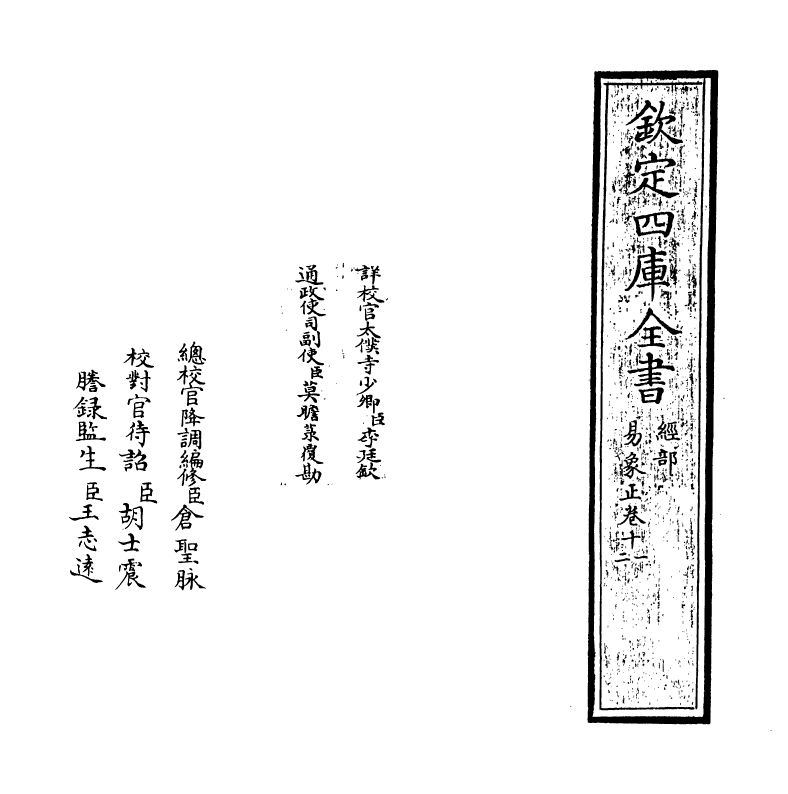 欽定四庫全書
經部
易象正卷十一二
詳校官太僕寺少卿臣李廷欽
通政使司副使臣莫瞻菉覆勘
總校官降調編修臣倉聖脉
校對官待詔臣胡士震
謄録監生臣王志遠